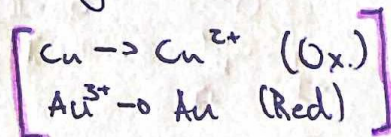 Cu -> Cu²⁺ (Ox.)
Au³⁺ -> Au (Red)